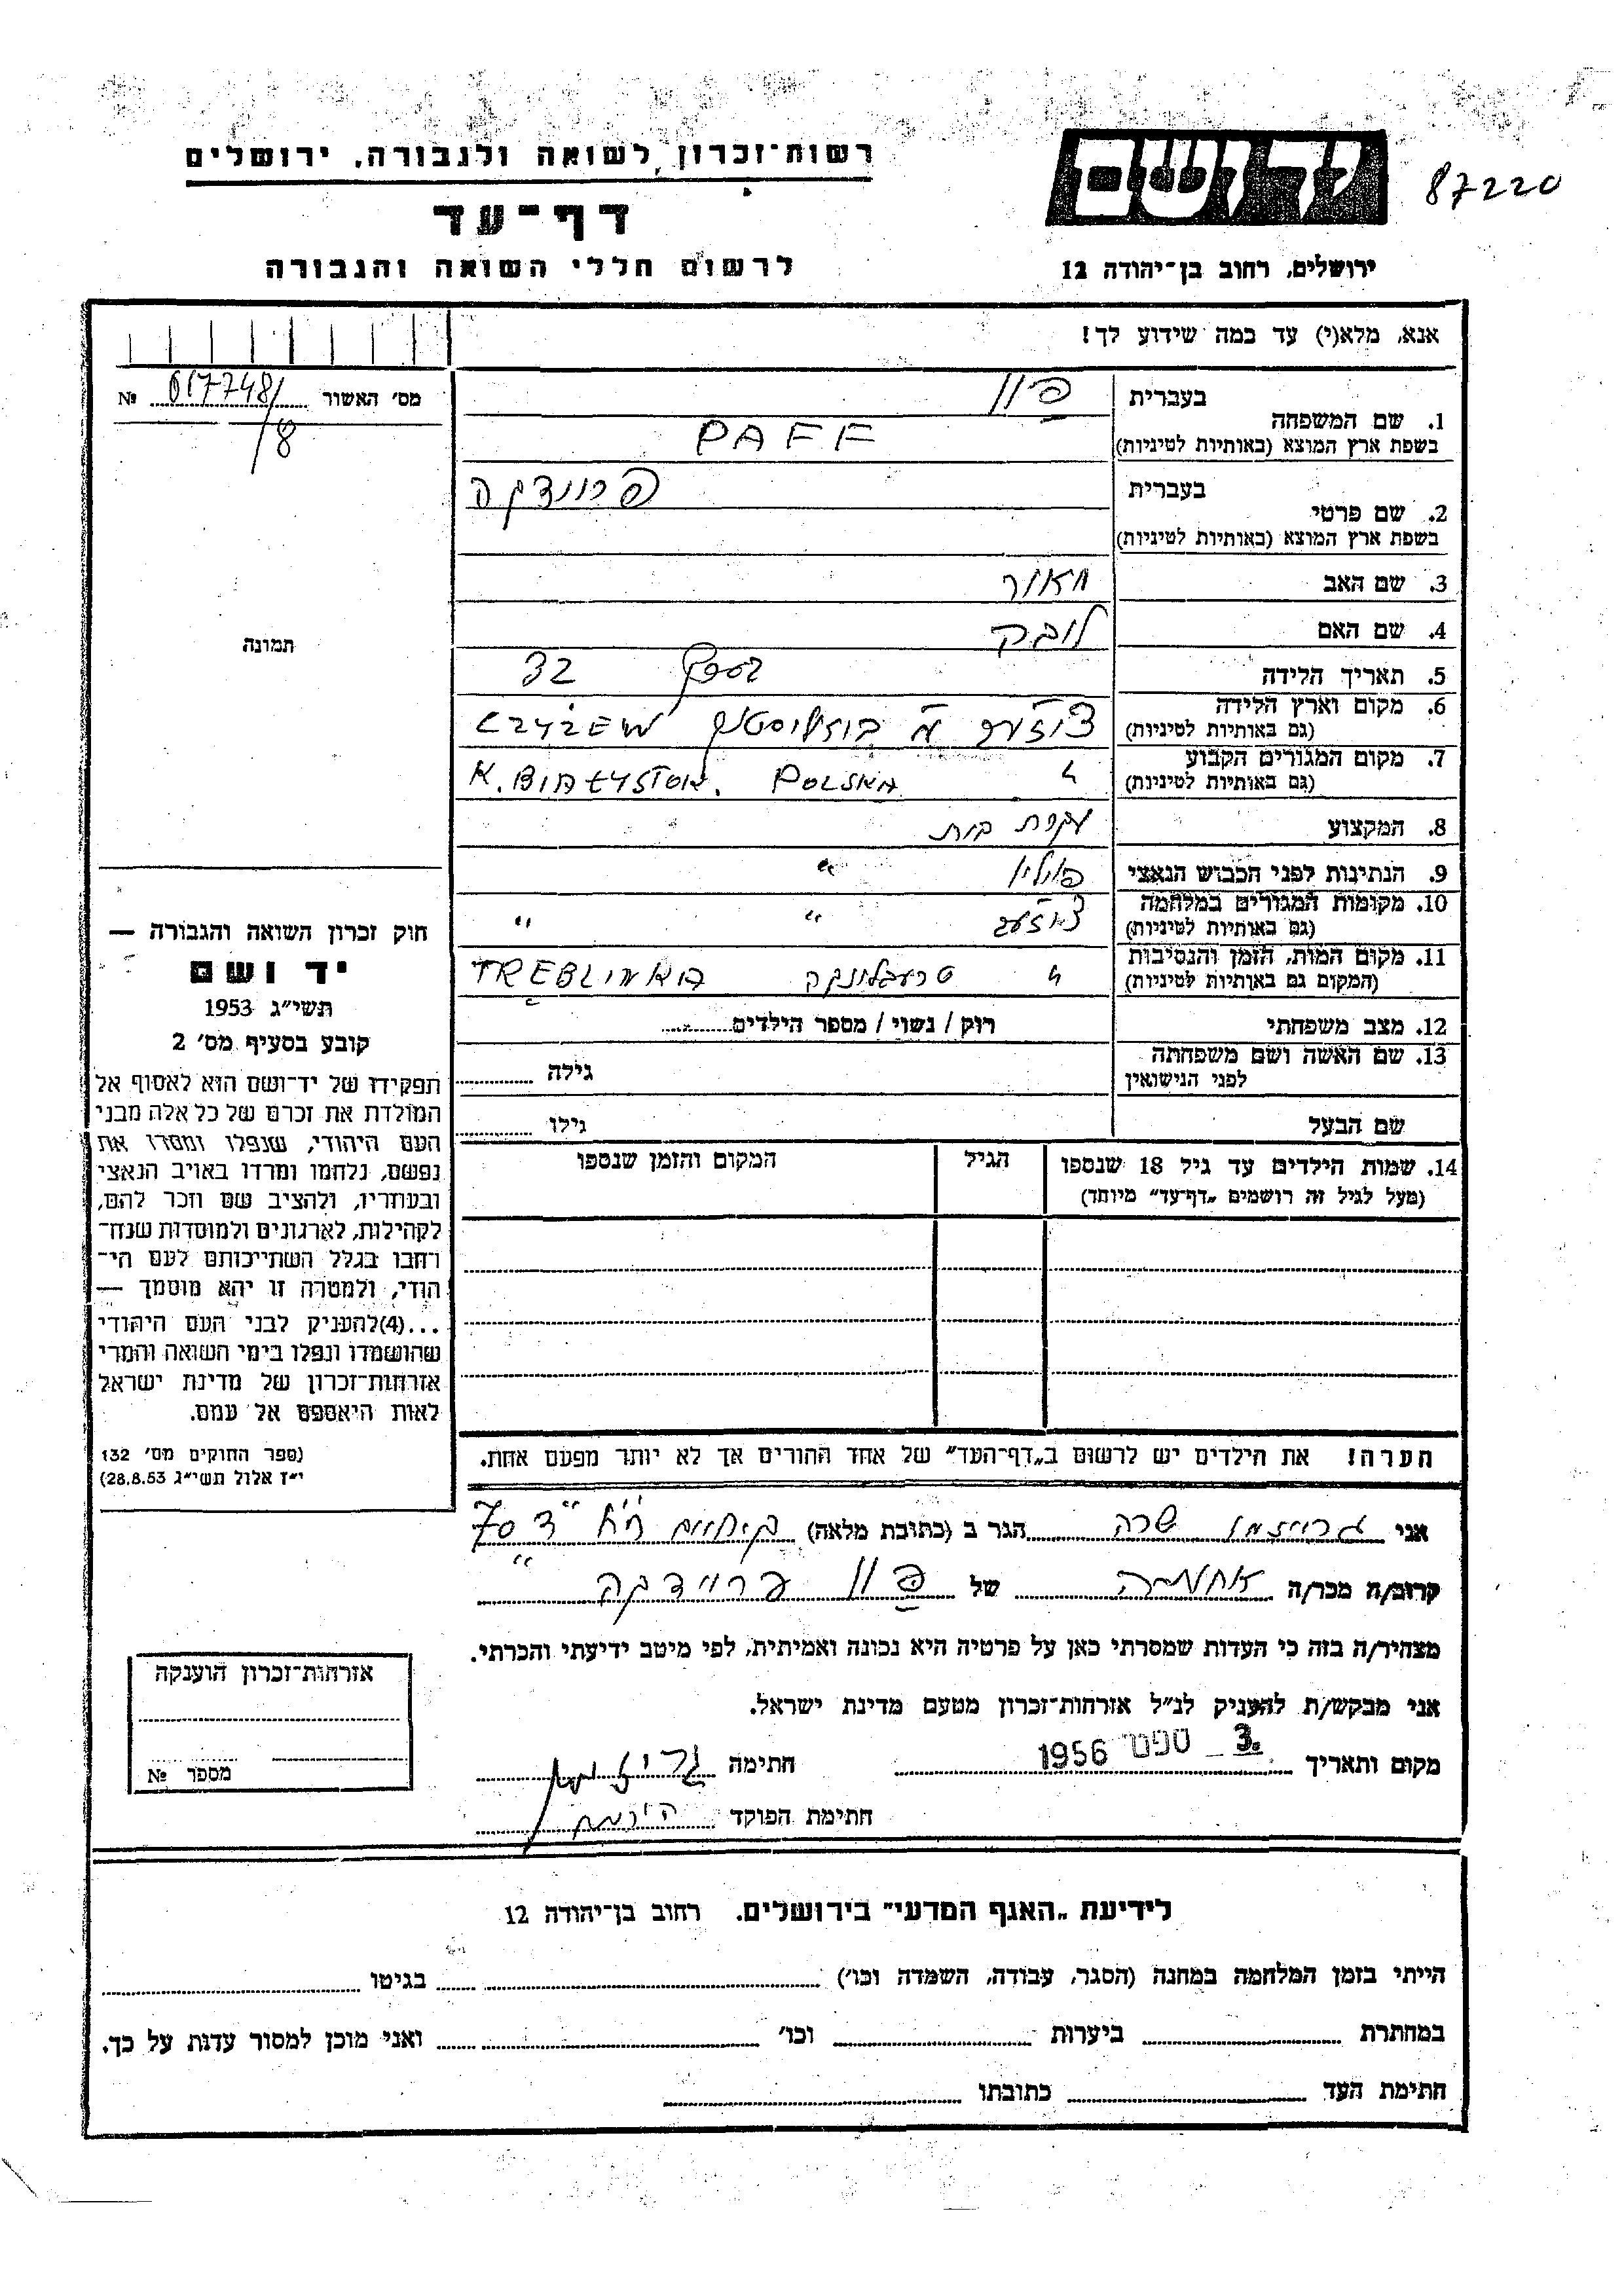 רשות־זכרון לשואה ולגבורה, ירושלים
דף־עד
לרשום חללי השואה והגבורה
ידושם
87220
ירושלים, רחוב בן־יהודה 12
אנא, מלא(י) עד כמה שידוע לך!
מס׳ האשור № 617748/
/8
תמונה
1. שם המשפחה
בעברית
בשפת ארץ המוצא (באותיות לטיניות) PAFF
2. שם פרטי
בעברית
בשפת ארץ המוצא (באותיות לטיניות)
3. שם האב מאור
4. שם האם
5. תאריך הלידה 32
6. מקום וארץ הלידה
(גם באותיות לטיניות) CZYŻEW
7. מקום המגורים הקבוע
(גם באותיות לטיניות) K. POLSKA
8. המקצוע עקרת בית
9. הנתינות לפני הכבוש הנאצי פולין "
10. מקומות המגורים במלחמה
(גם באותיות לטיניות) " "
11. מקום המות, הזמן והנסיבות
(המקום גם באותיות לטיניות) טרעבלינקה TREBLINKA
12. מצב משפחתי רוק / נשוי / מספר הילדים
13. שם האשה ושם משפחתה
לפני הנישואין גילה
שם הבעל גילו
14. שמות הילדים עד גיל 18 שנספו
(מעל לגיל זה רושמים „דף־עד״ מיוחד)
הגיל
המקום והזמן שנספו
חוק זכרון השואה והגבורה —
יד ושם
תשי״ג 1953
קובע בסעיף מס׳ 2
תפקידו של יד־ושם הוא לאסוף אל
המולדת את זכרם של כל אלה מבני
העם היהודי, שנפלו ומסרו את
נפשם, נלחמו ומרדו באויב הנאצי
ובעוזריו, ולהציב שם וזכר להם,
לקהילות, לארגונים ולמוסדות שנח־
רחבו בגלל השתייכותם לעם הי־
הודי, ולמטרה זו יהא מוסמך —
...(4)להעניק לבני העם היהודי
שהושמדו ונפלו בימי השואה והמרי
אזרחות־זכרון של מדינת ישראל
לאות היאספם אל עמם.
(ספר החוקים מס׳ 132
י״ז אלול תשי״ג 28.8.53)
הערה! את הילדים יש לרשום ב„דף־העד״ של אחד ההורים אך לא יותר מפעם אחת.
אני שרה הגר ב (כתובת מלאה) 70
קרוב/ה מכר/ה של
מצהיר/ה בזה כי העדות שמסרתי כאן על פרטיה היא נכונה ואמיתית, לפי מיטב ידיעתי והכרתי.
אני מבקש/ת להעניק לנ״ל אזרחות־זכרון מטעם מדינת ישראל.
מקום ותאריך 3. ספט 1956 חתימה
חתימת הפוקד
אזרחות־זכרון הוענקה
מספר №
לידיעת „האגף המדעי״ בירושלים. רחוב בן־יהודה 12
הייתי בזמן המלחמה במחנה (הסגר, עבודה, השמדה וכו׳) בגיטו
במחתרת ביערות וכו׳ ואני מוכן למסור עדות על כך.
חתימת העד כתובתו